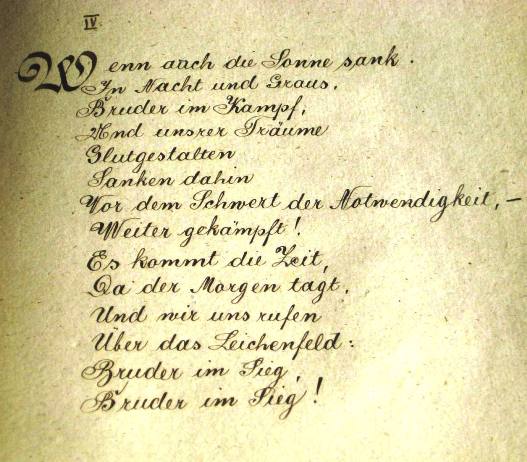 IV.
Wenn auch die Sonne sank.
In Nacht und Graus,
Bruder im Kampf,
Und unsrer Träume
Glutgestalten
Sanken dahin
Vor dem Schwert der Notwendigkeit, –
Weiter gekämpft!
Es kommt die Zeit,
Da der Morgen tagt,
Und wir uns rufen
Über das Leichenfeld:
Bruder im Sieg,
Bruder im Sieg!